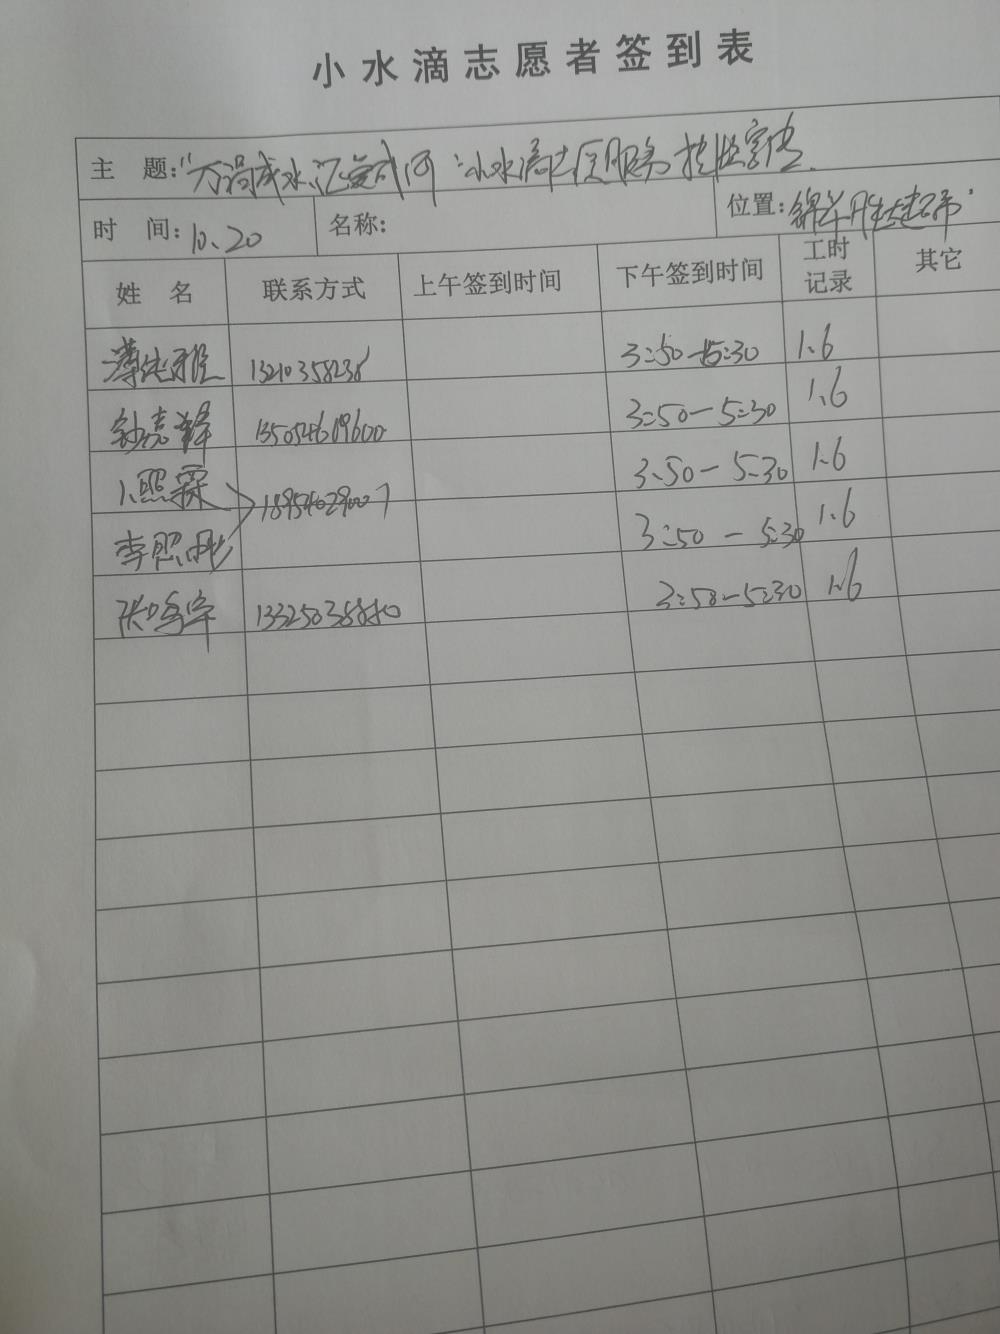 小水滴志愿者签到表
主 题:"万滴成水,汇爱成河"小水滴 便 服务
时 间: 10、20 名称: 位置: 锦华
姓 名 联系方式 上午签到时间 下午签到时间 工时记录 其它
薄纯雅 13210358238 3:50-5:30 1.6
嘉锋 135054619600 3:50-5:30 1.6
照霖 18954029007 3:50-5:30 1.6
李照彤 3:50-5:30 1.6
张鸣宇 13325038880 3:50-5:30 1.6